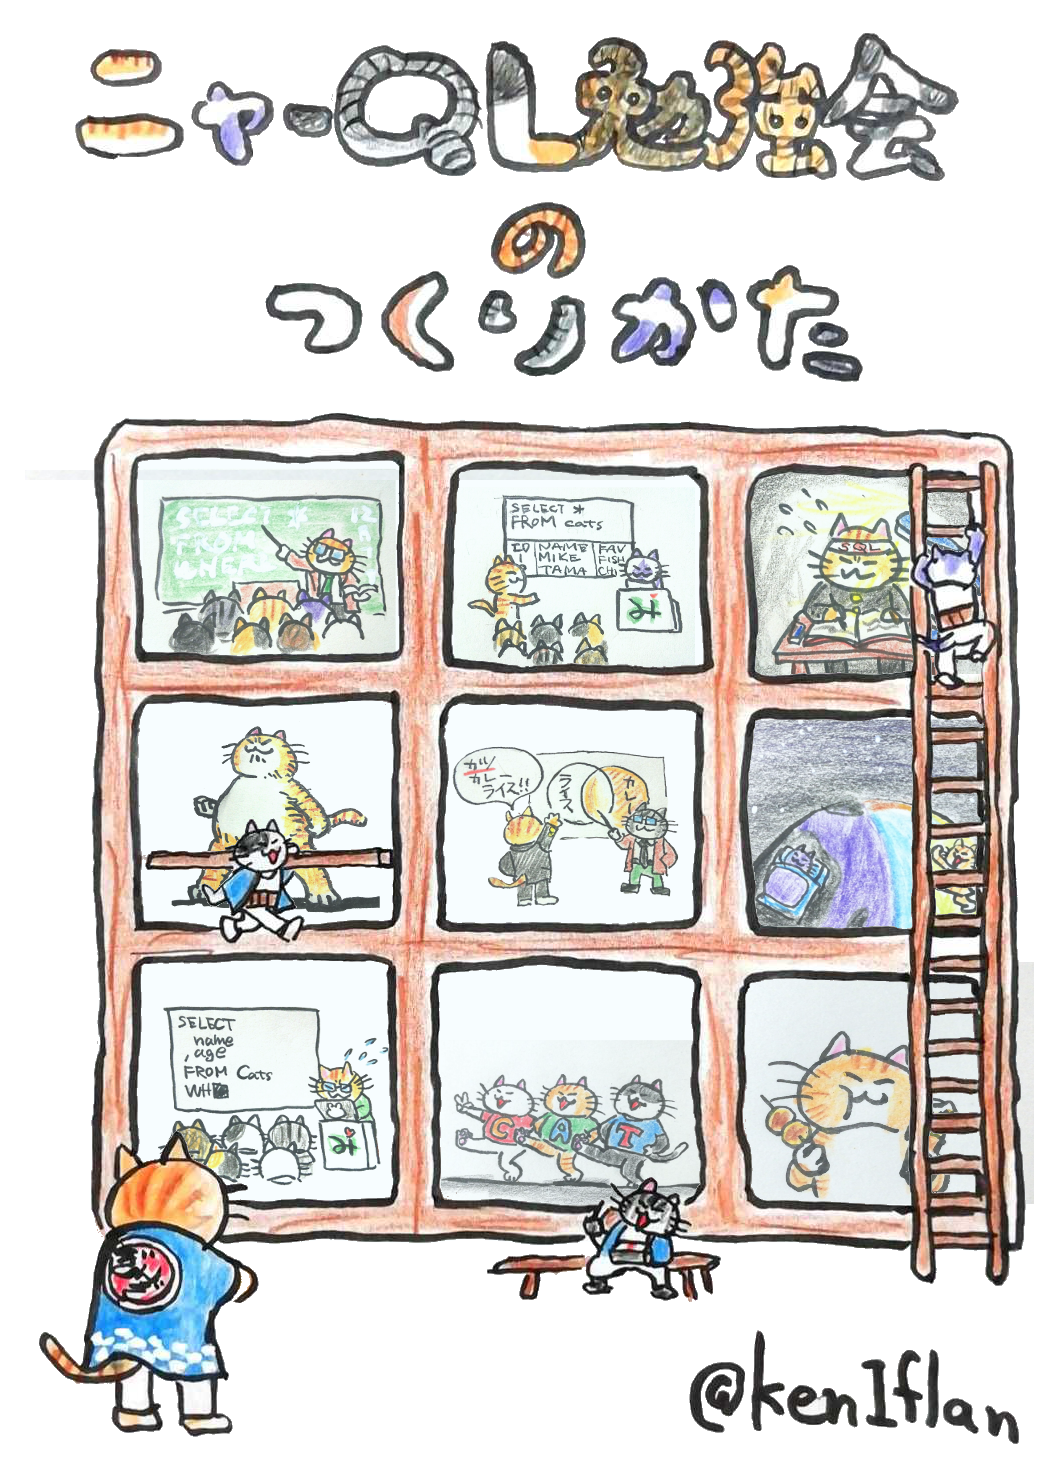 ニャーQL勉強会
の
つくりかた
SELECT *
FROM
WHERE
SELECT *
FROM cats
ID NAME FAV
1 MIKE FISH
TAMA CHI
み
SQL
カツ
カレー
ライス!!
ライス
カレー
SELECT
name
, age
FROM Cats
WH
み
C A T
@ken1flan